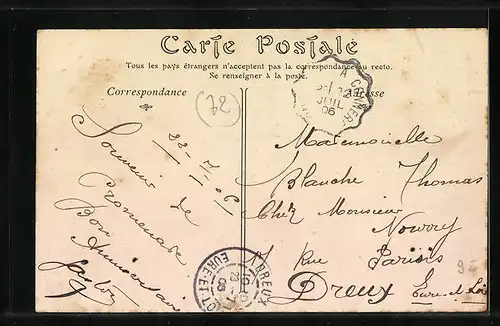 Carte Postale
Tous les pays étrangers n'acceptent pas la correspondance au recto.
Se renseigner à la poste.
Correspondance
Adresse
22
JUIL
06
22-7-06
Souvenir de
Promenade
Bon
Anniversaire
Mademoiselle
Blanche Thomas
Chez Monsieur
Rue Parisis
Dreux Eure-et-Loir
DREUX
EURE-ET-LOIR